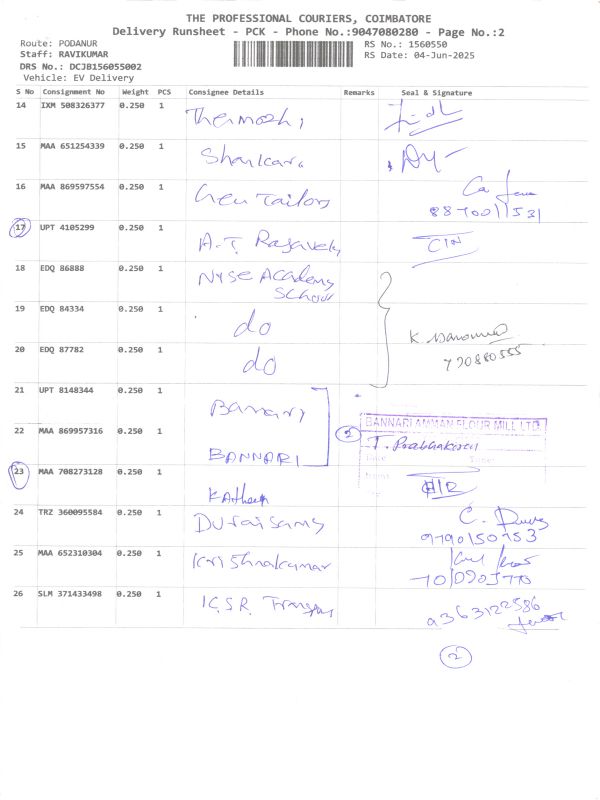 THE PROFESSIONAL COURIERS, COIMBATORE
Delivery Runsheet - PCK - Phone No.:9047080280 - Page No.:2
Route: PODANUR
RS No.: 1560550
Staff: RAVIKUMAR
RS Date: 04-Jun-2025
DRS No.: DCJB156055002
Vehicle: EV Delivery
S No Consignment No Weight PCS Consignee Details Remarks Seal & Signature
14 IXM 508326377 0.250 1
15 MAA 651254339 0.250 1
16 MAA 869597554 0.250 1 Tailors
8870011531
17 UPT 4105299 0.250 1 A.T.
18 EDQ 86888 0.250 1 NYSE ACADEMY
School
19 EDQ 84334 0.250 1 do
20 EDQ 87782 0.250 1 do
K
21 UPT 8148344 0.250 1 Bannari
BANNARI AMMAN FLOUR MILL LTD.
22 MAA 869957316 0.250 1 BANNARI
2 T. Prabhakaran
23 MAA 708273128 0.250 1
24 TRZ 360095584 0.250 1 Duraisamy C.
9790150753
25 MAA 652310304 0.250 1 Krishnakumar
26 SLM 371433498 0.250 1 K.S.R.
9363122586
2